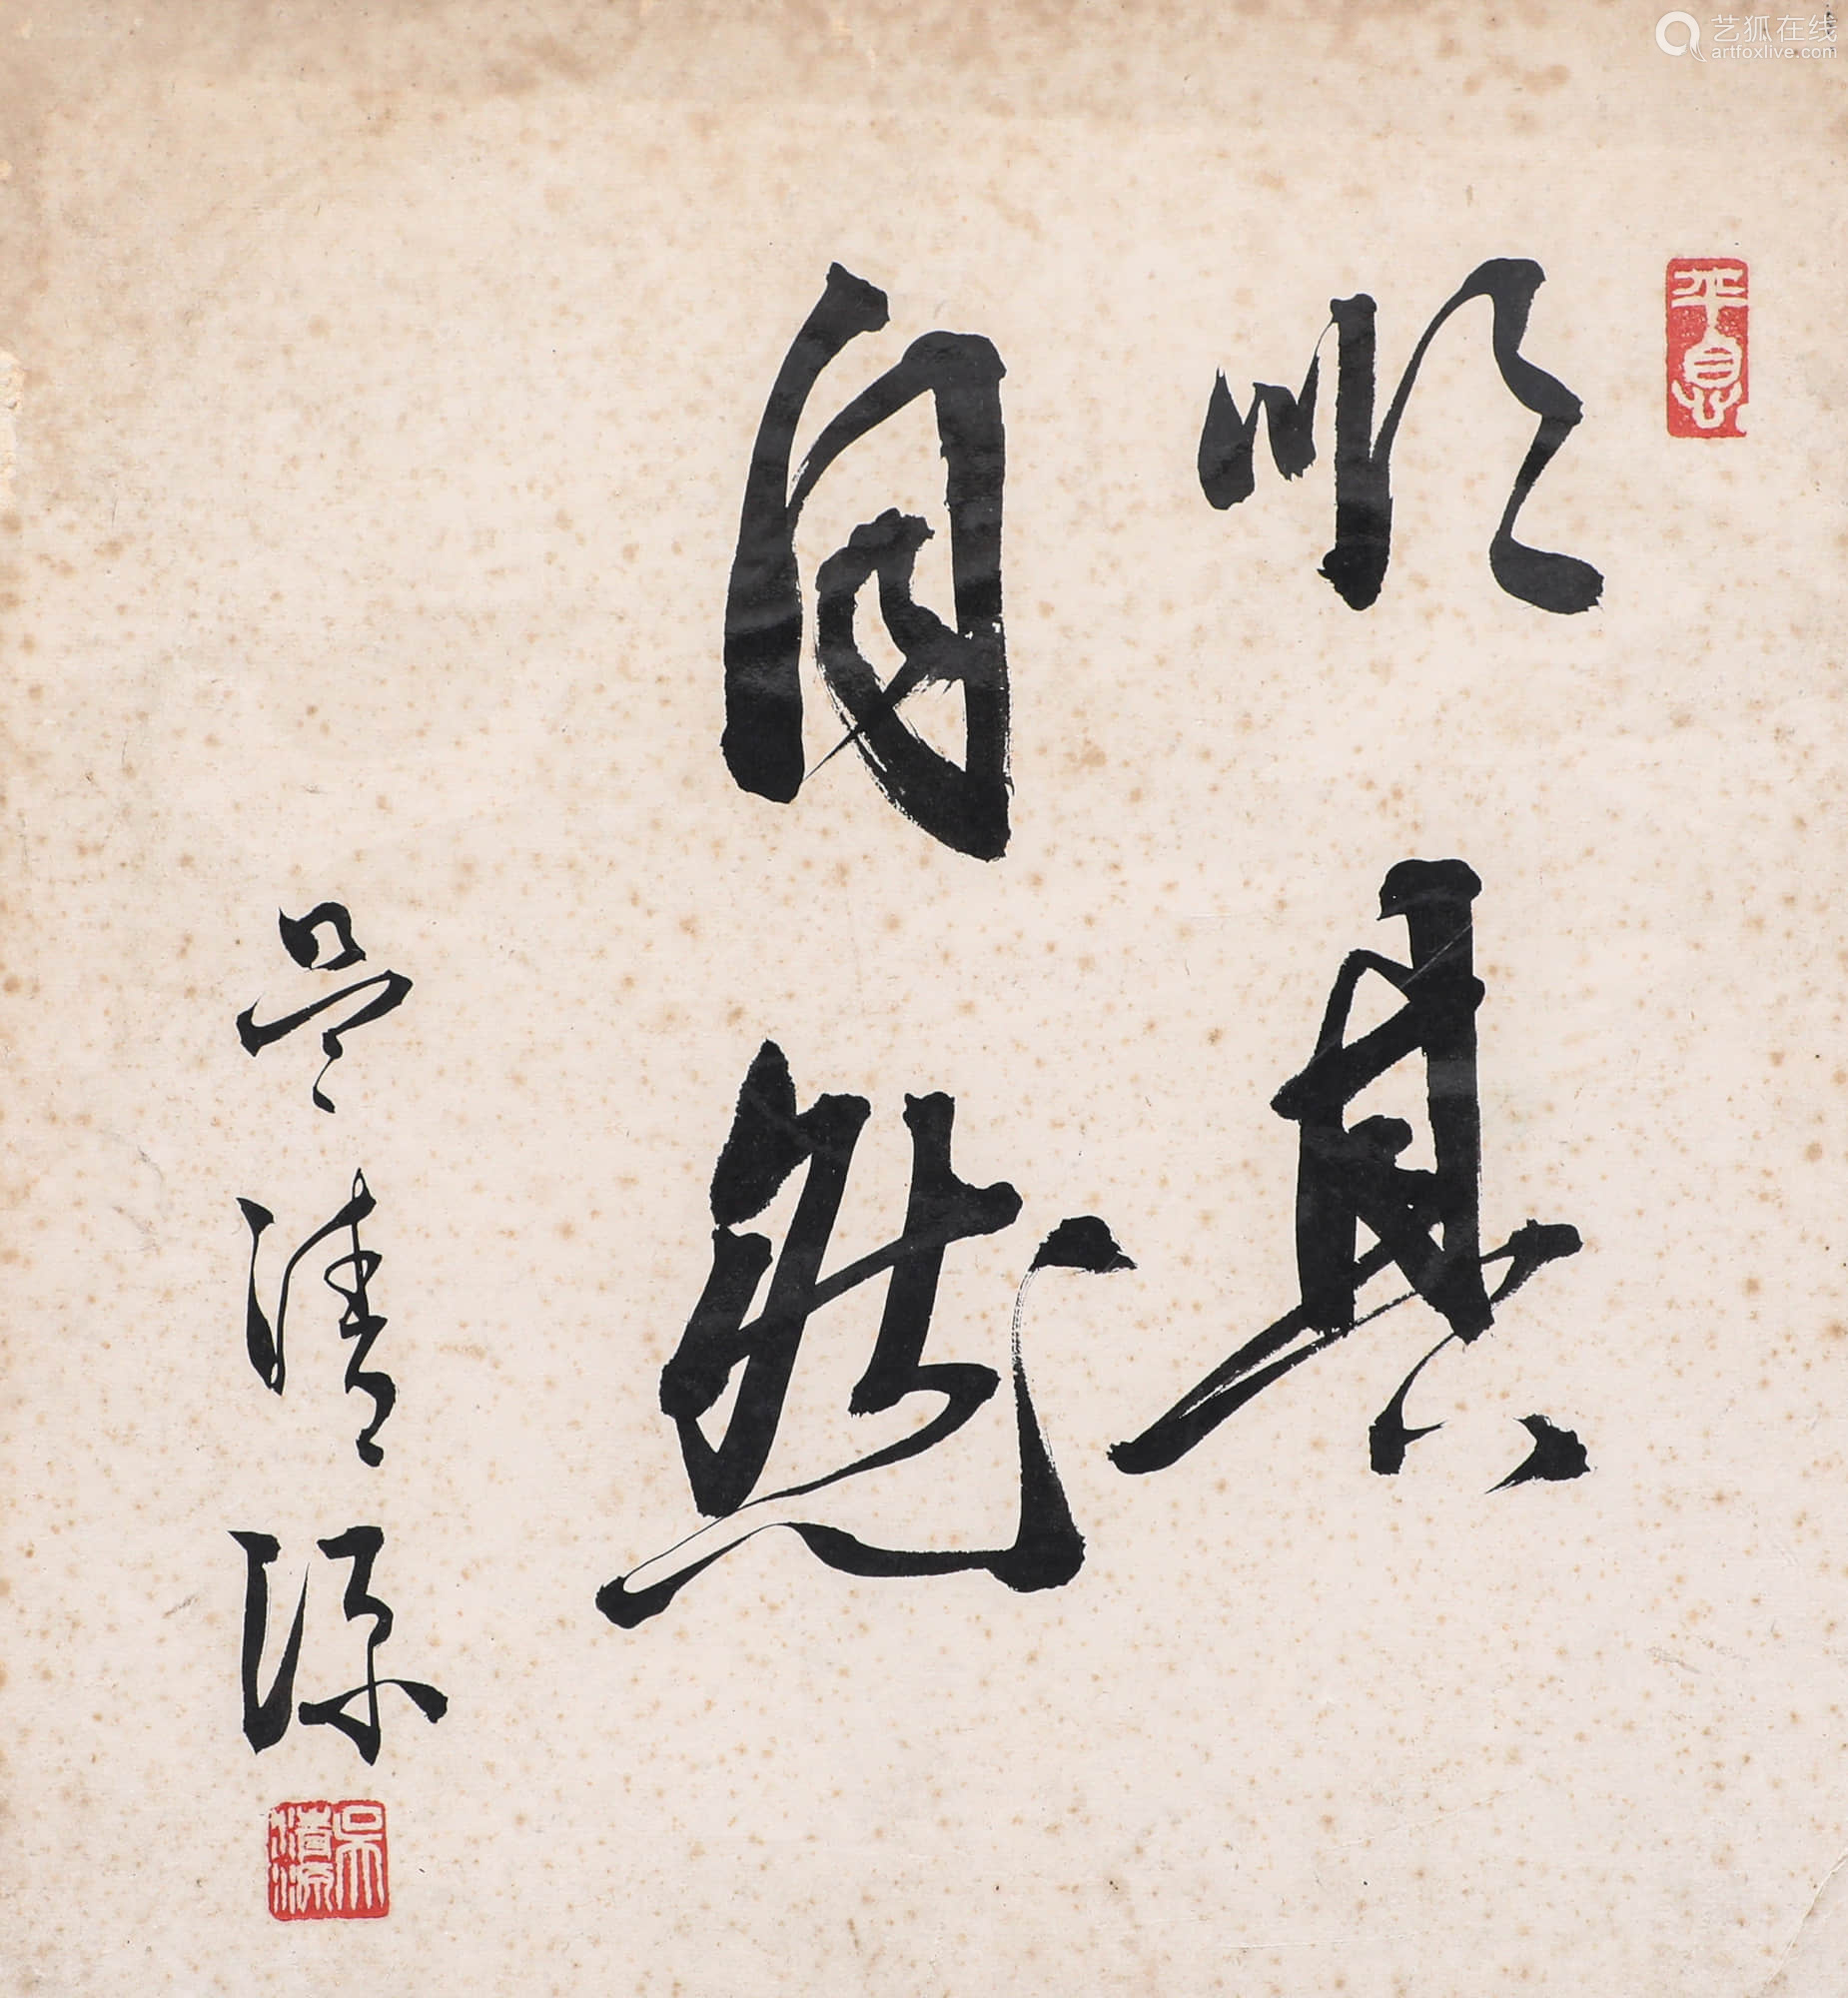 順其
自然
吳清源
平息
吳清源
艺狐在线
artfoxlive.com